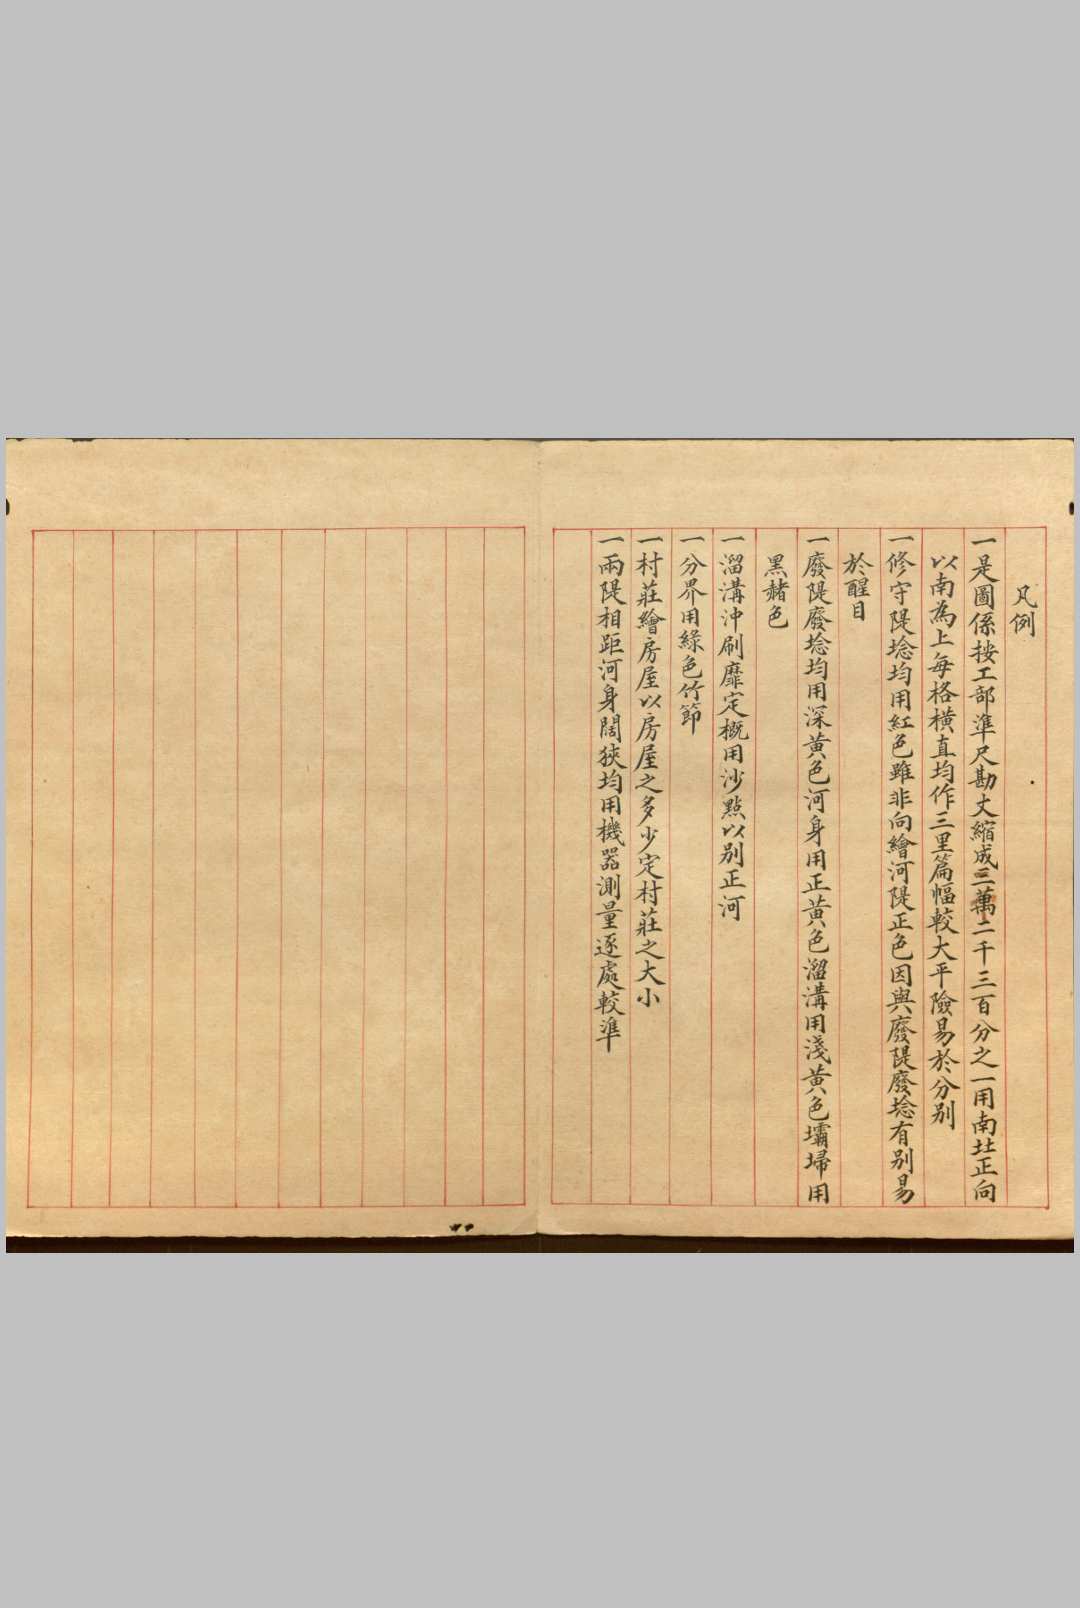 凡例
一是圖係按工部準尺勘丈縮成三萬二千三百分之一用南北正向
以南為上每格橫直均作三里篇幅較大平險易於分别
一修守隄埝均用紅色雖非向繪河隄正色因與廢隄廢埝有别易
於醒目
一廢隄廢埝均用深黄色河身用正黄色溜溝用淺黄色壩埽用
黑赭色
一溜溝沖刷靡定概用沙點以别正河
一分界用綠色竹節
一村莊繪房屋以房屋之多少定村莊之大小
一兩隄相距河身闊狹均用機器測量逐處較準